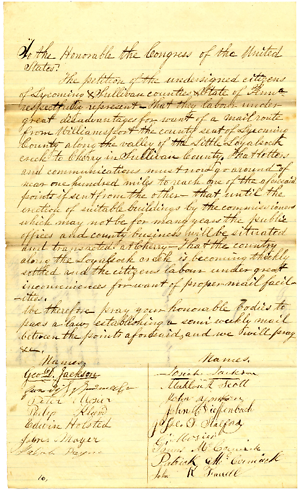 To the Honorable the Congress of the United
States:
The petition of the undersigned citizens
of Lycoming & Sullivan counties & State of Penn'a
respectfully represent – that they labor under
great disadvantages for want of a mail route
from Williamsport the county seat of Lycoming
County along the valley of the Little Loyalsock
creek to Cherry in Sullivan County, that letters
and communications must now go around of
near one hundred miles to reach one of the aforesaid
points if sent from the other – that until the
erection of suitable buildings by the commissioners
which may not be for many years the public
offices and county business will be situated
and transacted at Cherry – that the country
along the Loyalsock creek is becoming thickly
settled and the citizens labour under great
inconveniences for want of proper mail facil-
ities.
We therefore pray your honorable bodies to
pass a law establishing a semi weekly mail
between the points aforesaid, and we will pray
&c.
Names.
Names.
Geo. D. Jackson
Josiah Jackson
Scott
Peter
John
Philip
John
Edwin Holsted
James
James McCormick
Patrick McCormick
John